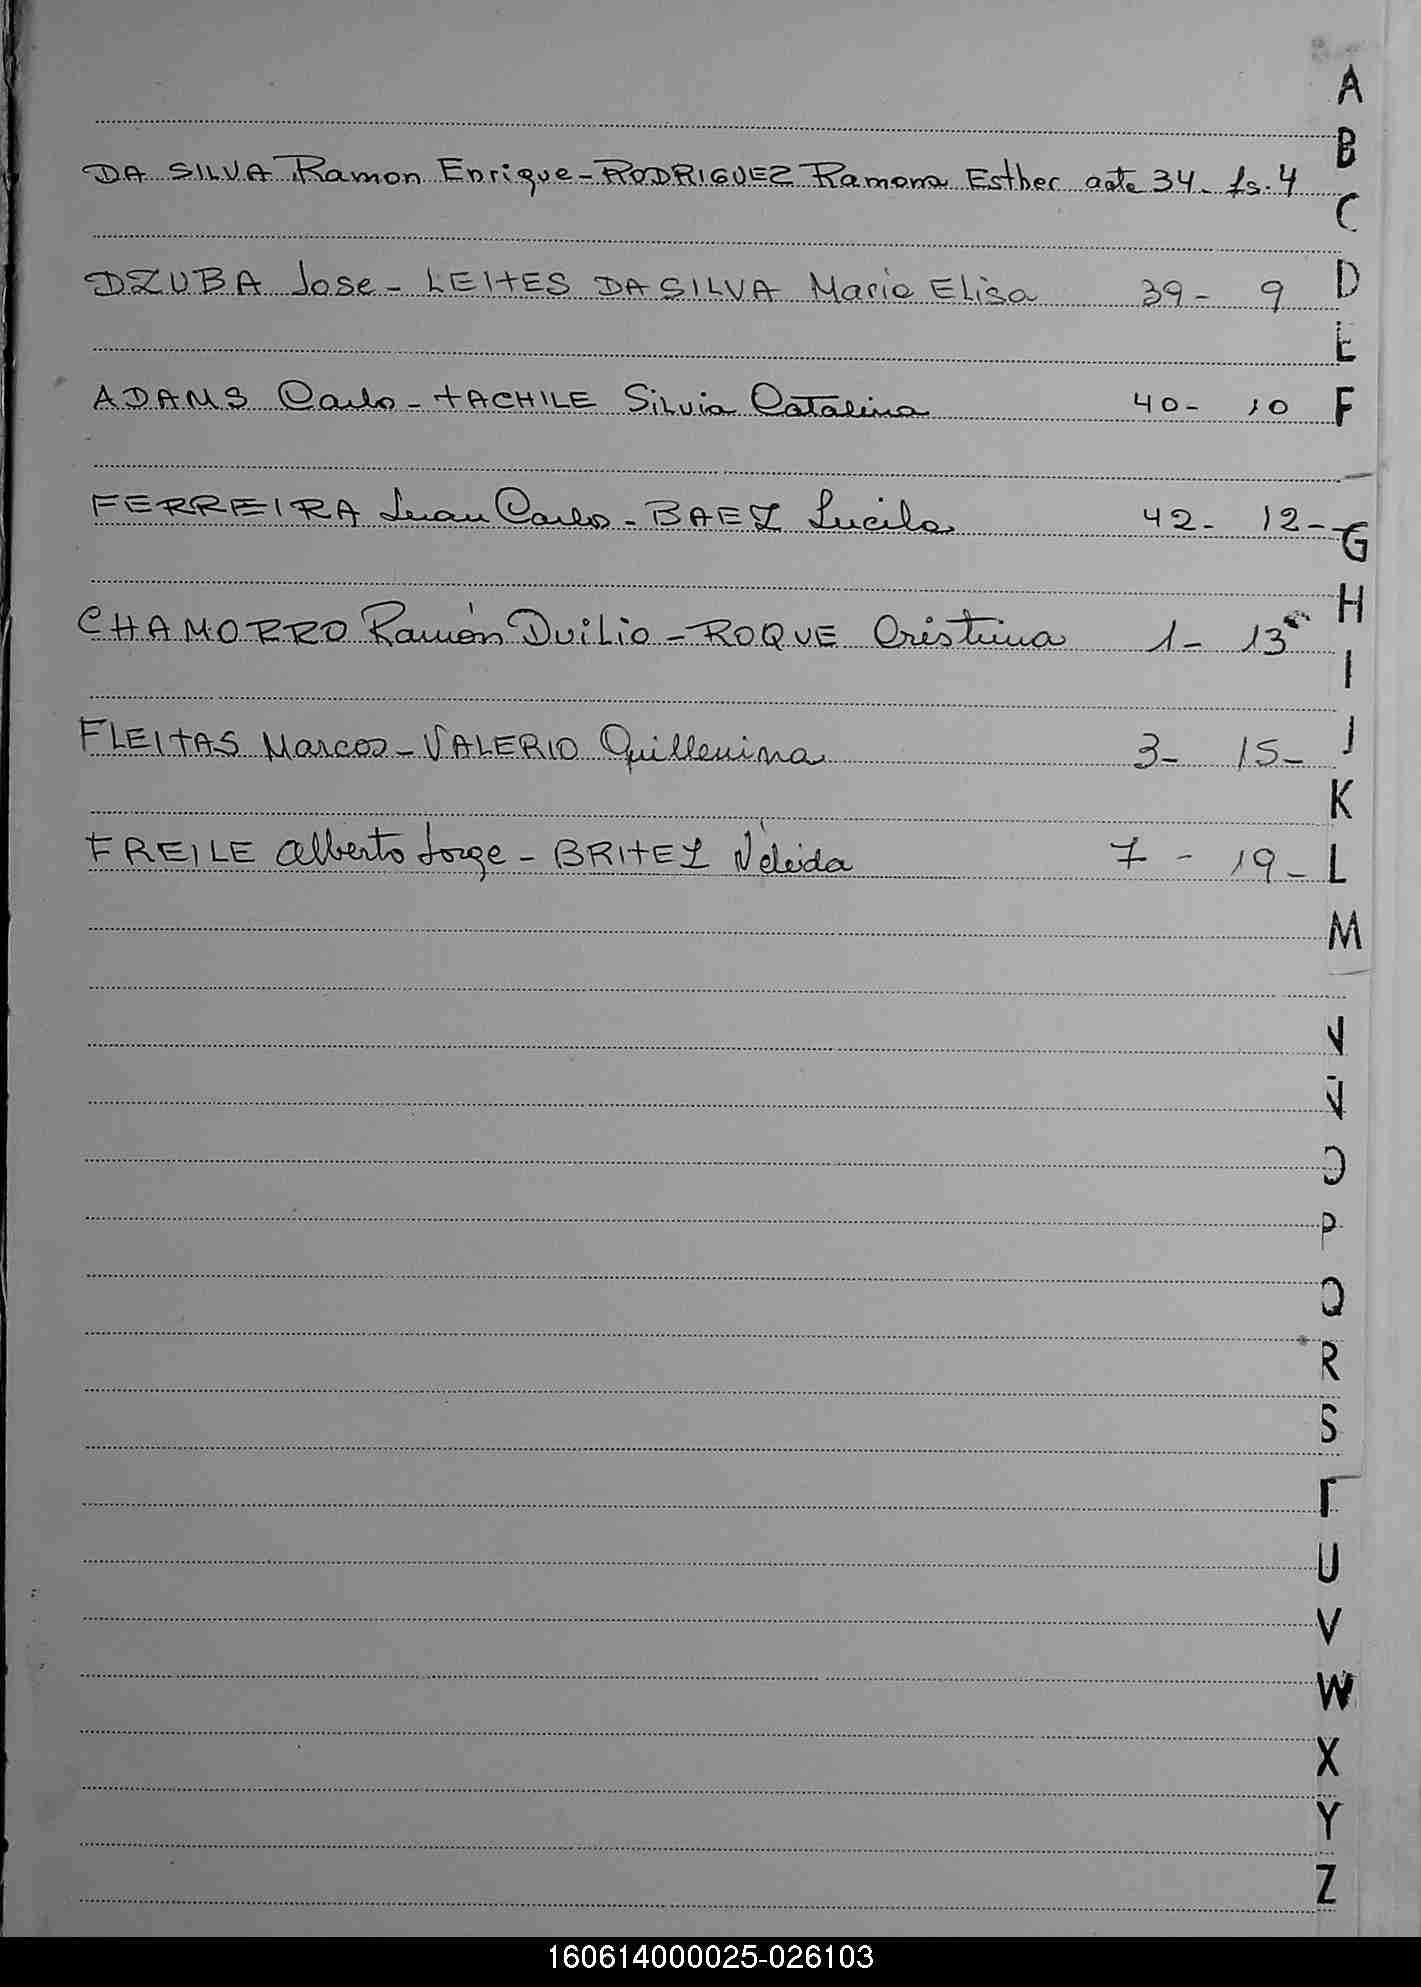 DA SILVA Ramon Enrique - RODRIGUEZ Ramona Esther acta 34- fs. 4
DZUBA Jose - LEITES DA SILVA Maria Elisa 39- 9
ADAMS Carlo - TACHILE Silvia Catalina 40- 10
FERREIRA Juan Carlos - BAEZ Lucila 42- 12-
CHAMORRO Ramón Duilio - ROQUE Cristina 1- 13
FLEITAS Marcos - VALERIO Guillermina 3- 15-
FREILE Alberto Jorge - BRITEZ Neleida 7- 19-
A
B
C
D
E
F
G
H
I
J
K
L
M
N
Ñ
O
P
Q
R
S
T
U
V
W
X
Y
Z
160614000025-026103